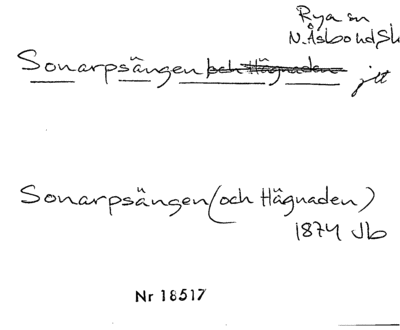 Rya sn
N. Åsbo hd, Sk
Sonarpsängen och Hägnaden jtt
Sonarpsängen (och Hägnaden)
1874 Jb
Nr 18517